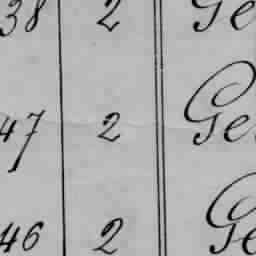 38 2 Ge
47 2 Ge
46 2 Ge